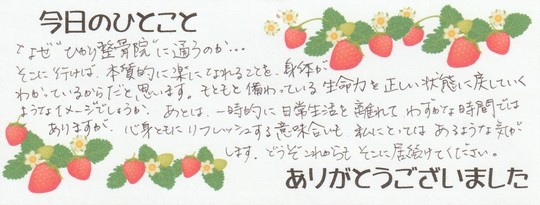 今日のひとこと
なぜ"ひかり整骨院"に通うのか…
そこに行けば、本質的に楽になれることを、身体が
わかっているからだと思います。もともと備わっている生命力を正しい状態に戻していく
ようなイメージでしょうか。あとは、一時的に日常生活を離れて わずかな時間では
ありますが、心身ともにリフレッシュする意味合いも 私にとっては あるような気が
します。どうぞこれからも そこに居続けてください。
ありがとうございました